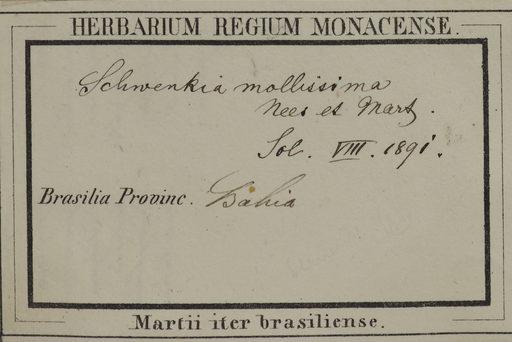 HERBARIUM REGIUM MONACENSE.
Schwenkia mollissima
Nees et Mart.
Sol. VIII. 1891.
Brasilia Provinc. Bahia
Martii iter brasiliense.